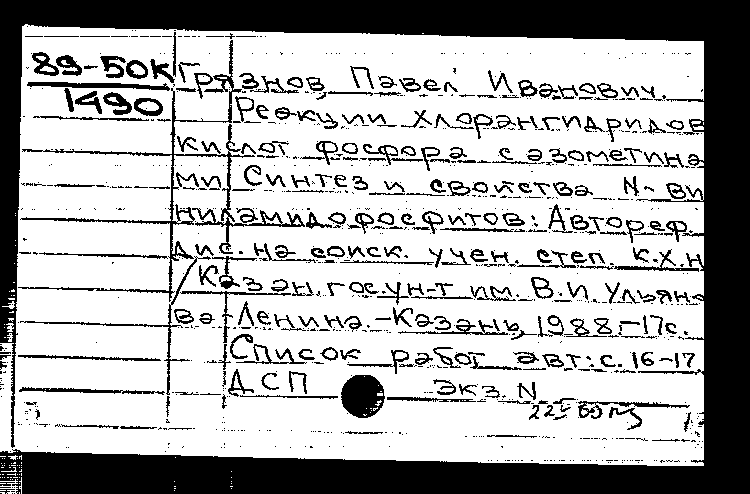 89-50К
1490
Грязнов, Павел Иванович.
Реакции хлорангидридов
кислот фосфора с азометина
ми Синтез и свойства N-ви
ниламидофосфитов: Автореф.
дис. на соиск. учен. степ. к.х.н
/Казан. гос. ун-т им. В.И. Ульяно
ва-Ленина.-Казань, 1988.-17с.
Список работ авт.: с. 16-17
ДСП экз. N